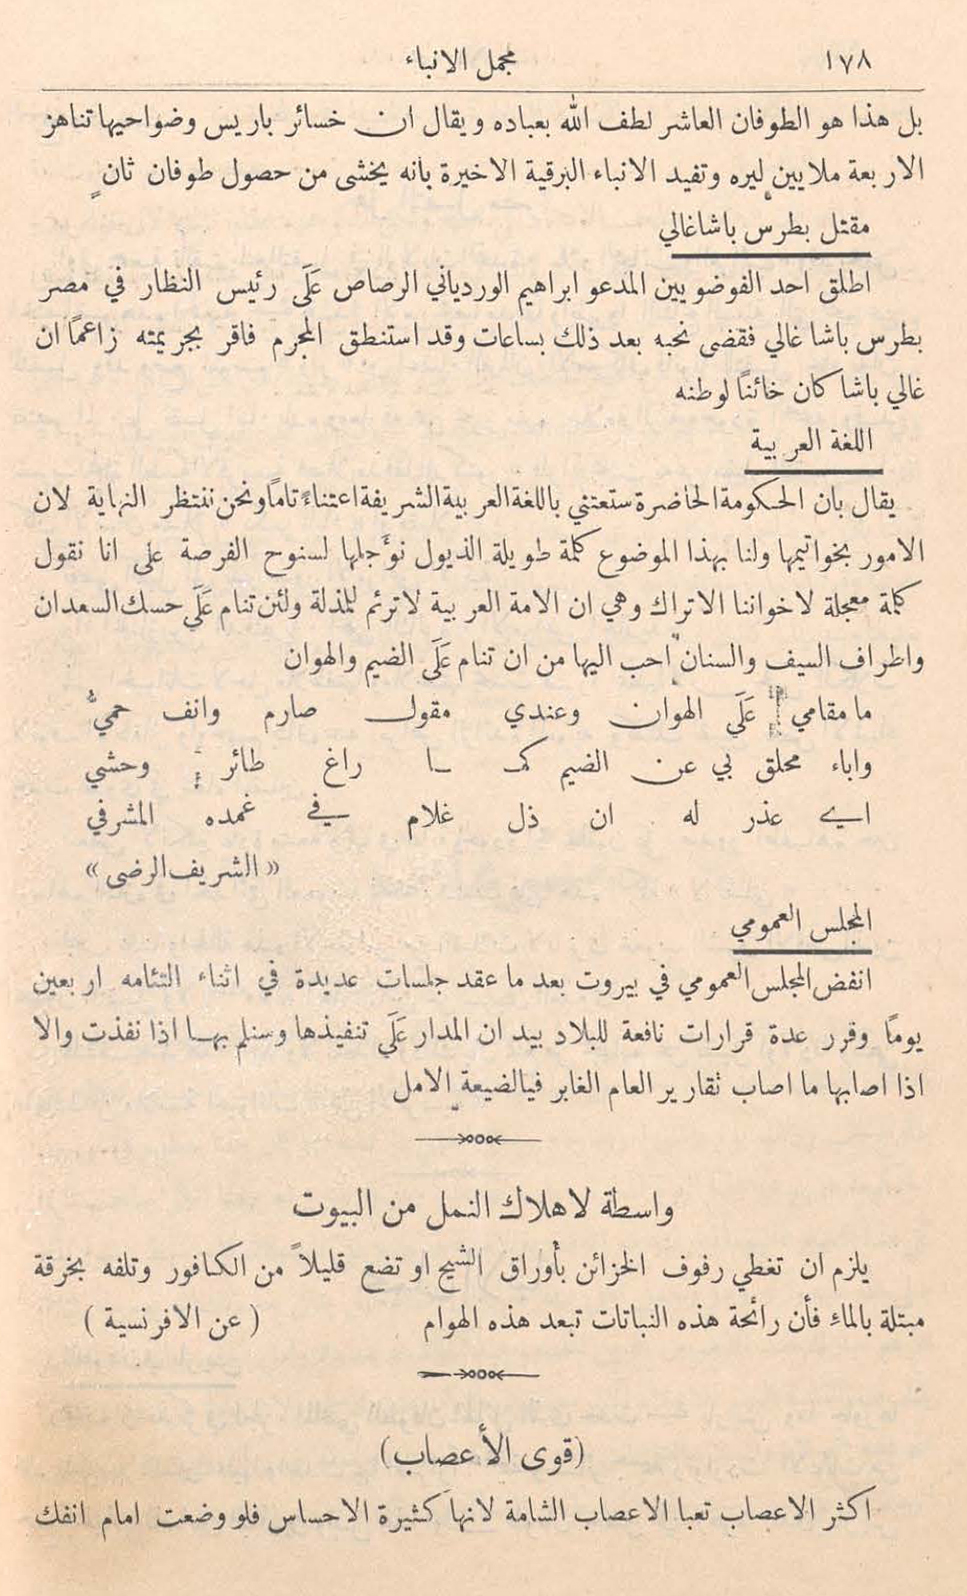 ١٧٨
مجمل الانباء
بل هذا هو الطوفان العاشر لطف الله بعباده ويقال ان خسائر باريس وضواحيها تناهز
الاربعة ملايين ليره وتفيد الانباء البرقية الاخيرة بانه يخشى من حصول طوفان ثانٍ
مقتل بطرس باشا غالي
اطلق احد الفوضويين المدعو ابراهيم الوردياني الرصاص عَلَى رئيس النظار في مصر
بطرس باشا غالي فقضى نحبه بعد ذلك بساعات وقد استنطق المجرم فاقر بجريمته زاعماً ان
غالي باشا كان خائناً لوطنه
اللغة العربية
يقال بان الحكومة الحاضرة ستعتني باللغة العربية الشريفة اعتناءً تاماً ونحن ننتظر النهاية لان
الامور بخواتيمها ولنا بهذا الموضوع كلمة طويلة الذيول نؤجلها لسنوح الفرصة على انا نقول
كلمة معجلة لاخواننا الاتراك وهي ان الامة العربية لا ترئم للمذلة ولئن تنام عَلَى حسك السعدان
واطراف السيف والسنان احب اليها من ان تنام عَلَى الضيم والهوان
ما مقامي عَلَى الهوان وعندي مقول صارم وانف حميُّ
واباء محلق بي عن الضيم كما راغ طائر وحشي
اي عذر له ان ذل غلام في غمده المشرفي
« الشريف الرضى »
المجلس العمومي
انفض المجلس العمومي في بيروت بعد ما عقد جلسات عديدة في اثناء التئامه اربعين
يوماً وقرر عدة قرارات نافعة للبلاد بيد ان المدار عَلَى تنفيذها وسنلم بها اذا نفذت والا
اذا اصابها ما اصاب تقارير العام الغابر فيالضيعة الامل
واسطة لاهلاك النمل من البيوت
يلزم ان تغطي رفوف الخزائن بأوراق الشيح او تضع قليلاً من الكافور وتلفه بخرقة
مبتلة بالماء فأن رائحة هذه النباتات تبعد هذه الهوام ( عن الافرنسية )
(قوى الأعصاب)
اكثر الاعصاب تعبا الاعصاب الشامة لانها كثيرة الاحساس فلو وضعت امام انفك